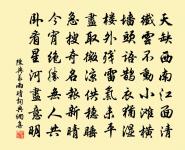 天缺西南江面清
纖雲不動小灘橫
牆頭語鵲衣猶濕
樓外殘雷氣未平
盡取微涼供穩睡
急搜奇句報新晴
今宵絕勝無人共
臥看星河盡意明
陳與義雨晴詞典網書